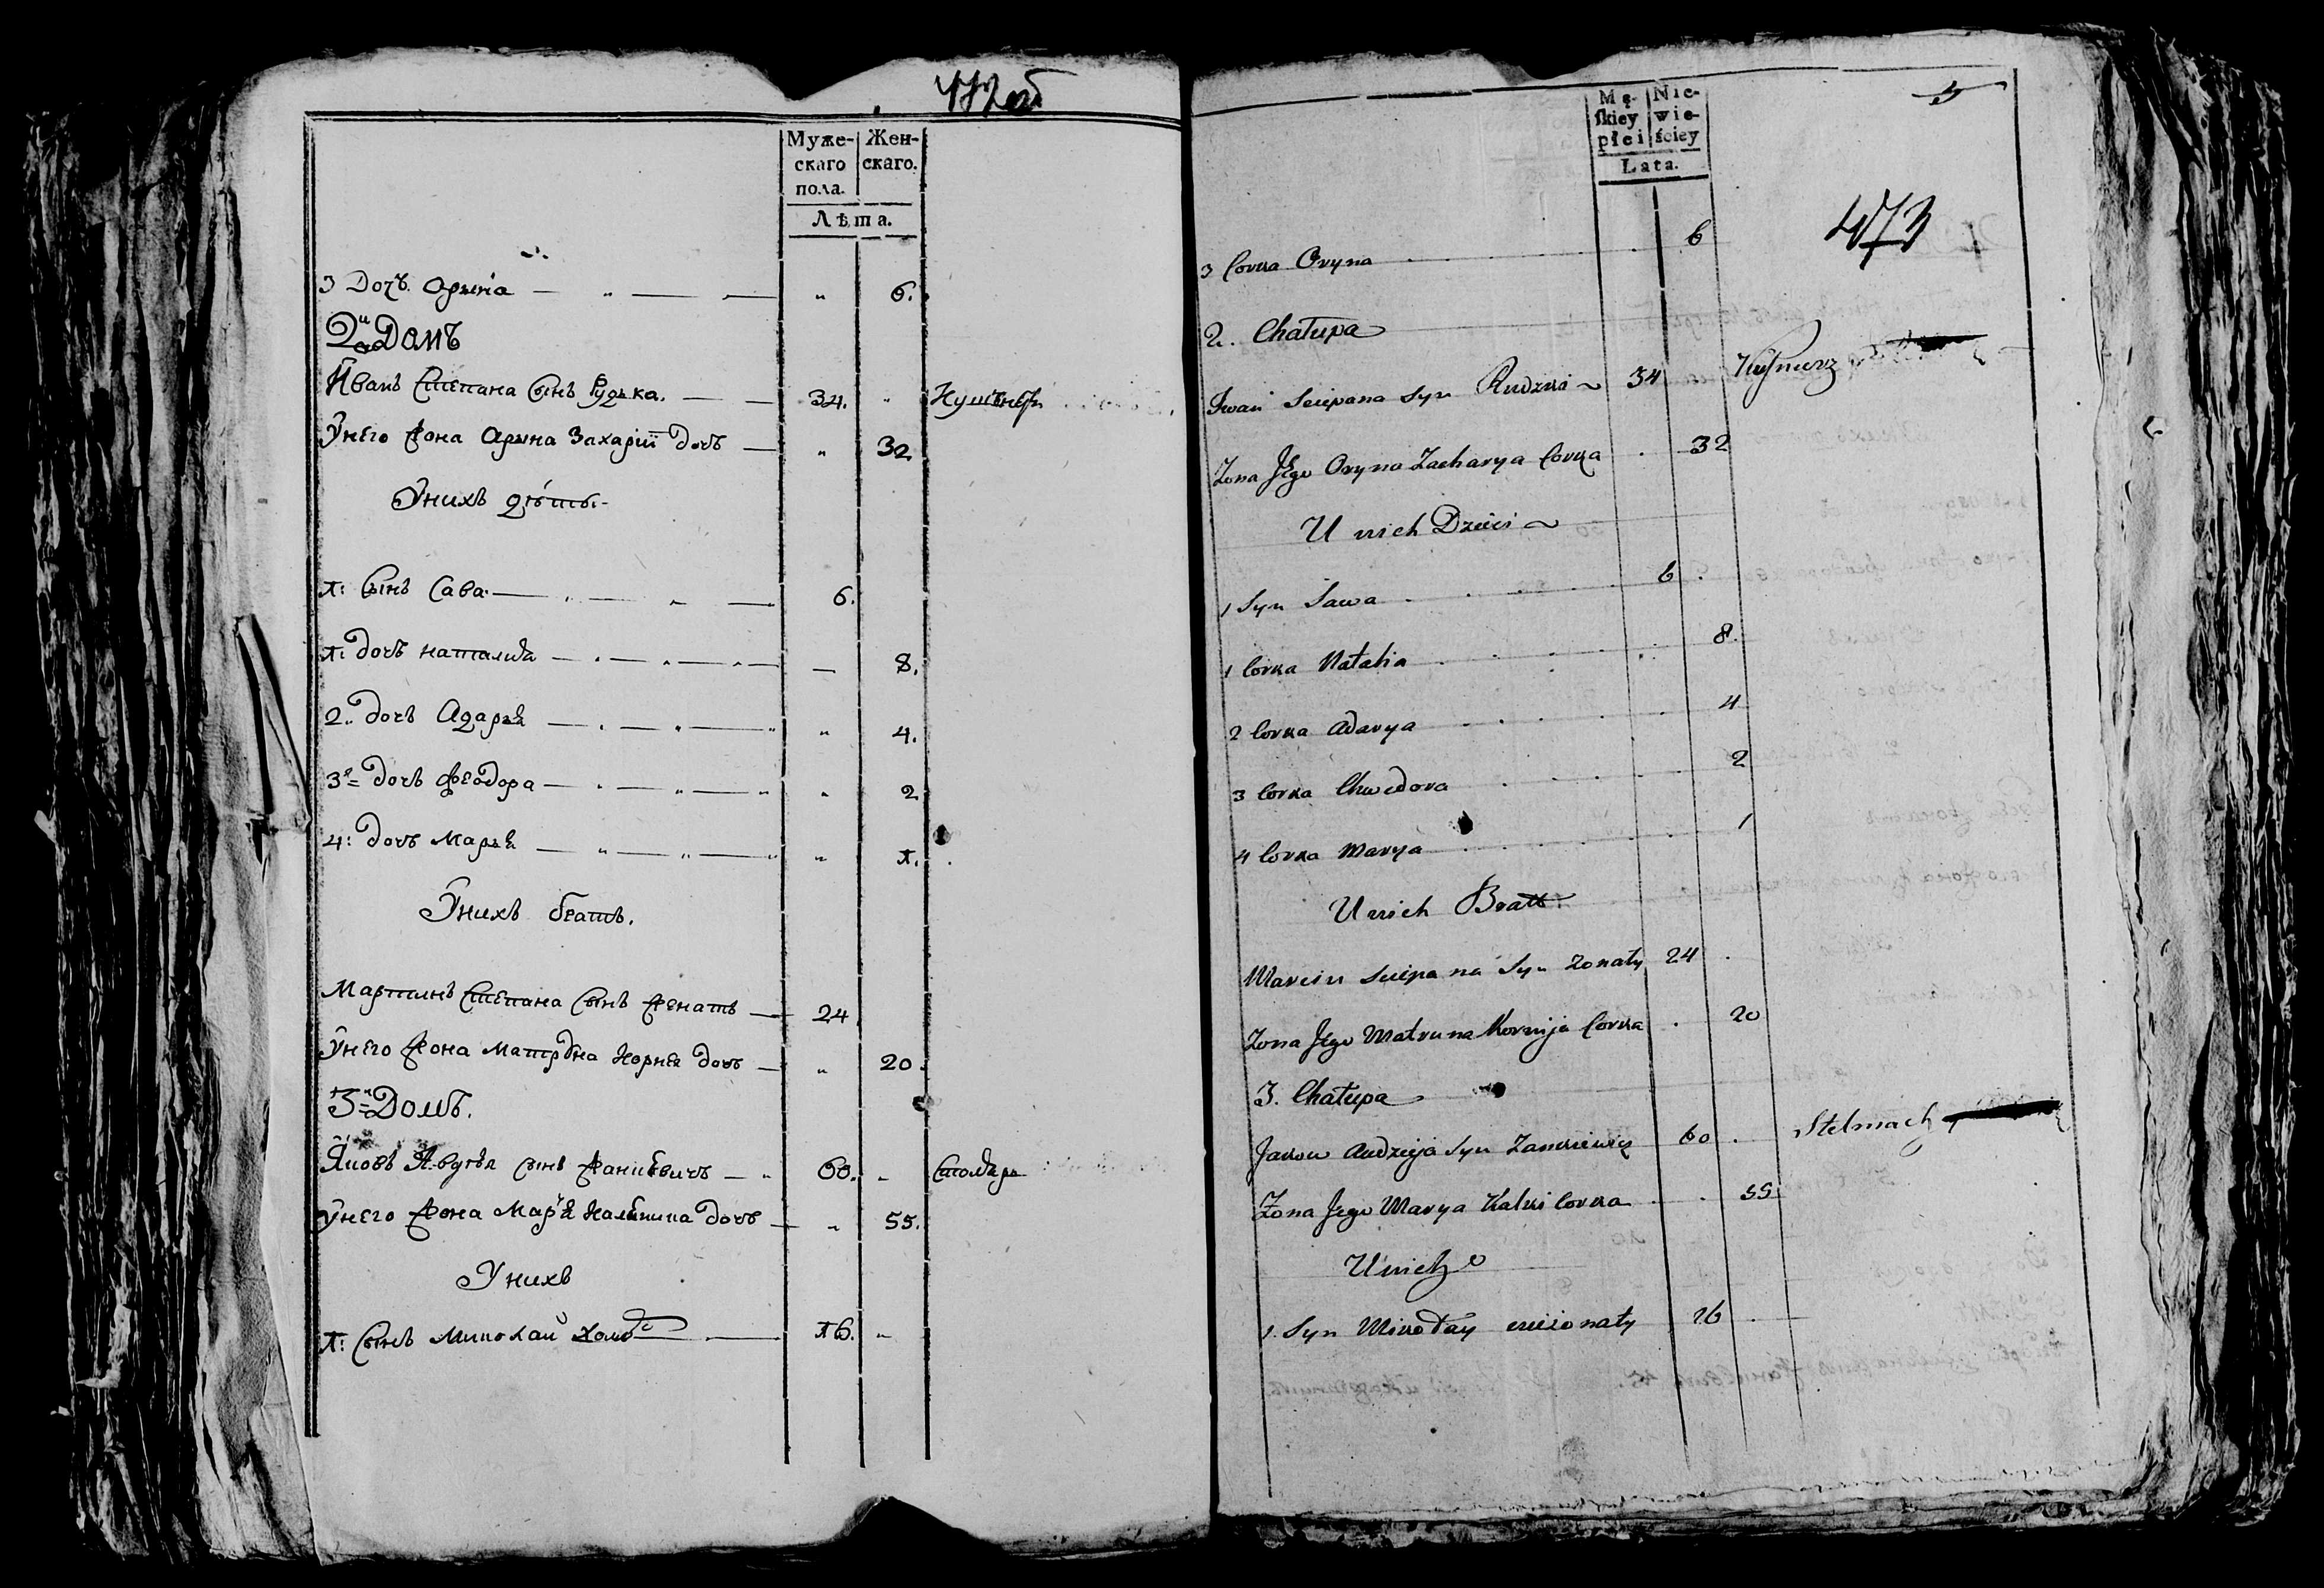 472 об
Муже-
скаго
пола.
Жен-
скаго.
Лѣта.
3 Дочь Арина — „ — „ 6.
2й Домъ
Иванъ Степана сынъ Рудзка. — 34. „ Кушнеръ
У него жона Арина Захарiи дочь — „ 32
У нихъ дѣти
1: Сынъ Сава — „ — „ — 6.
1: дочь Наталиа — „ — „ — — 8.
2. дочь Адарья — „ — „ — „ 4.
3я дочь Феодора — „ — „ — „ 2
4: дочь Марья — „ — „ — „ 1.
У нихъ братъ.
Мартинъ Степана сынъ женатъ — 24
У него жона Матруна Корнея дочь — „ 20.
3й Домъ.
Яковъ Авдѣя сынъ Жанкевичъ — „ 60. „ Столяръ
У него жона Марья Калинина дочь — „ 55.
У нихъ
1: Сынъ Миколай холо — 16. „
5
Mę-
skiey
płci
Nie-
wie-
ściey
Lata.
473
3 Corka Oryna 6
2. Chałupa
Iwan Sciepana Syn Rudzki 34 Kuśnierz
Zona Jego Oryna Zacharya Corka 32
U nich Dzieci
1 Syn Sawa 6
1 Corka Natalia 8.
2 Corka Adarya 4
3 Corka Chwedora 2
4 Corka Marya 1
U nich Bratt
Marcin Sciepana Syn Zonaty 24
Zona Jego Matruna Kornija Corka 20
3. Chałupa
Jakow Andzieja Syn Zankiewicz 60 Stelmach
Zona Jego Marya Kalki Corka 55
U nich
1. Syn Mikołay niezonaty 26